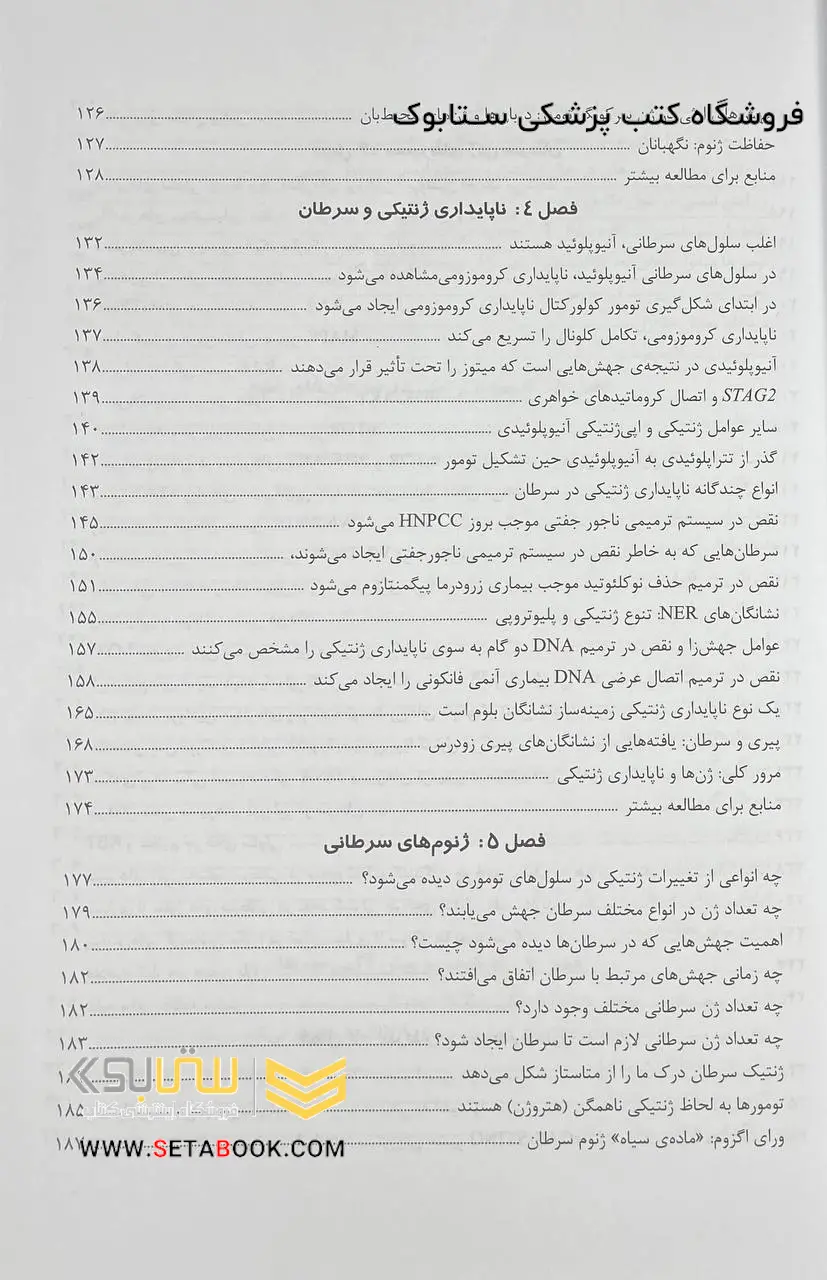 فروشگاه کتب پزشکی ستابوک
۱۲۶
حفاظت ژنوم: نگهبانان ۱۲۷
منابع برای مطالعه بیشتر ۱۲۸
فصل ۴: ناپایداری ژنتیکی و سرطان
اغلب سلول‌های سرطانی، آنیوپلوئید هستند ۱۳۲
در سلول‌های سرطانی آنیوپلوئید، ناپایداری کروموزومی‌مشاهده می‌شود ۱۳۴
در ابتدای شکل‌گیری تومور کولورکتال ناپایداری کروموزومی ایجاد می‌شود ۱۳۶
ناپایداری کروموزومی، تکامل کلونال را تسریع می‌کند ۱۳۷
آنیوپلوئیدی در نتیجه‌ی جهش‌هایی است که میتوز را تحت تأثیر قرار می‌دهند ۱۳۸
STAG2 و اتصال کروماتیدهای خواهری ۱۳۹
سایر عوامل ژنتیکی و اپی‌ژنتیکی آنیوپلوئیدی ۱۴۰
گذر از تتراپلوئیدی به آنیوپلوئیدی حین تشکیل تومور ۱۴۲
انواع چندگانه ناپایداری ژنتیکی در سرطان ۱۴۳
نقص در سیستم ترمیمی ناجور جفتی موجب بروز HNPCC می‌شود ۱۴۵
سرطان‌هایی که به خاطر نقص در سیستم ترمیمی ناجورجفتی ایجاد می‌شوند، ۱۵۰
نقص در ترمیم حذف نوکلئوتید موجب بیماری زرودرما پیگمنتازوم می‌شود ۱۵۱
نشانگان‌های NER: تنوع ژنتیکی و پلیوتروپی ۱۵۵
عوامل جهش‌زا و نقص در ترمیم DNA دو گام به سوی ناپایداری ژنتیکی را مشخص می‌کنند ۱۵۷
نقص در ترمیم اتصال عرضی DNA بیماری آنمی فانکونی را ایجاد می‌کند ۱۵۸
یک نوع ناپایداری ژنتیکی زمینه‌ساز نشانگان بلوم است ۱۶۵
پیری و سرطان: یافته‌هایی از نشانگان‌های پیری زودرس ۱۶۸
مرور کلی: ژن‌ها و ناپایداری ژنتیکی ۱۷۳
منابع برای مطالعه بیشتر ۱۷۴
فصل ۵: ژنوم‌های سرطانی
چه انواعی از تغییرات ژنتیکی در سلول‌های توموری دیده می‌شود؟ ۱۷۷
چه تعداد ژن در انواع مختلف سرطان جهش می‌یابند؟ ۱۷۹
اهمیت جهش‌هایی که در سرطان‌ها دیده می‌شود چیست؟ ۱۸۰
چه زمانی جهش‌های مرتبط با سرطان اتفاق می‌افتند؟ ۱۸۲
چه تعداد ژن سرطانی مختلف وجود دارد؟ ۱۸۲
چه تعداد ژن سرطانی لازم است تا سرطان ایجاد شود؟ ۱۸۳
ژنتیک سرطان درک ما را از متاستاز شکل می‌دهد
تومورها به لحاظ ژنتیکی ناهمگن (هتروژن) هستند ۱۸۵
ورای اگزوم: «ماده‌ی سیاه» ژنوم سرطان ۱۸۷
ستابوک
فروشگاه اینترنتی کتاب
WWW.SETABOOK.COM